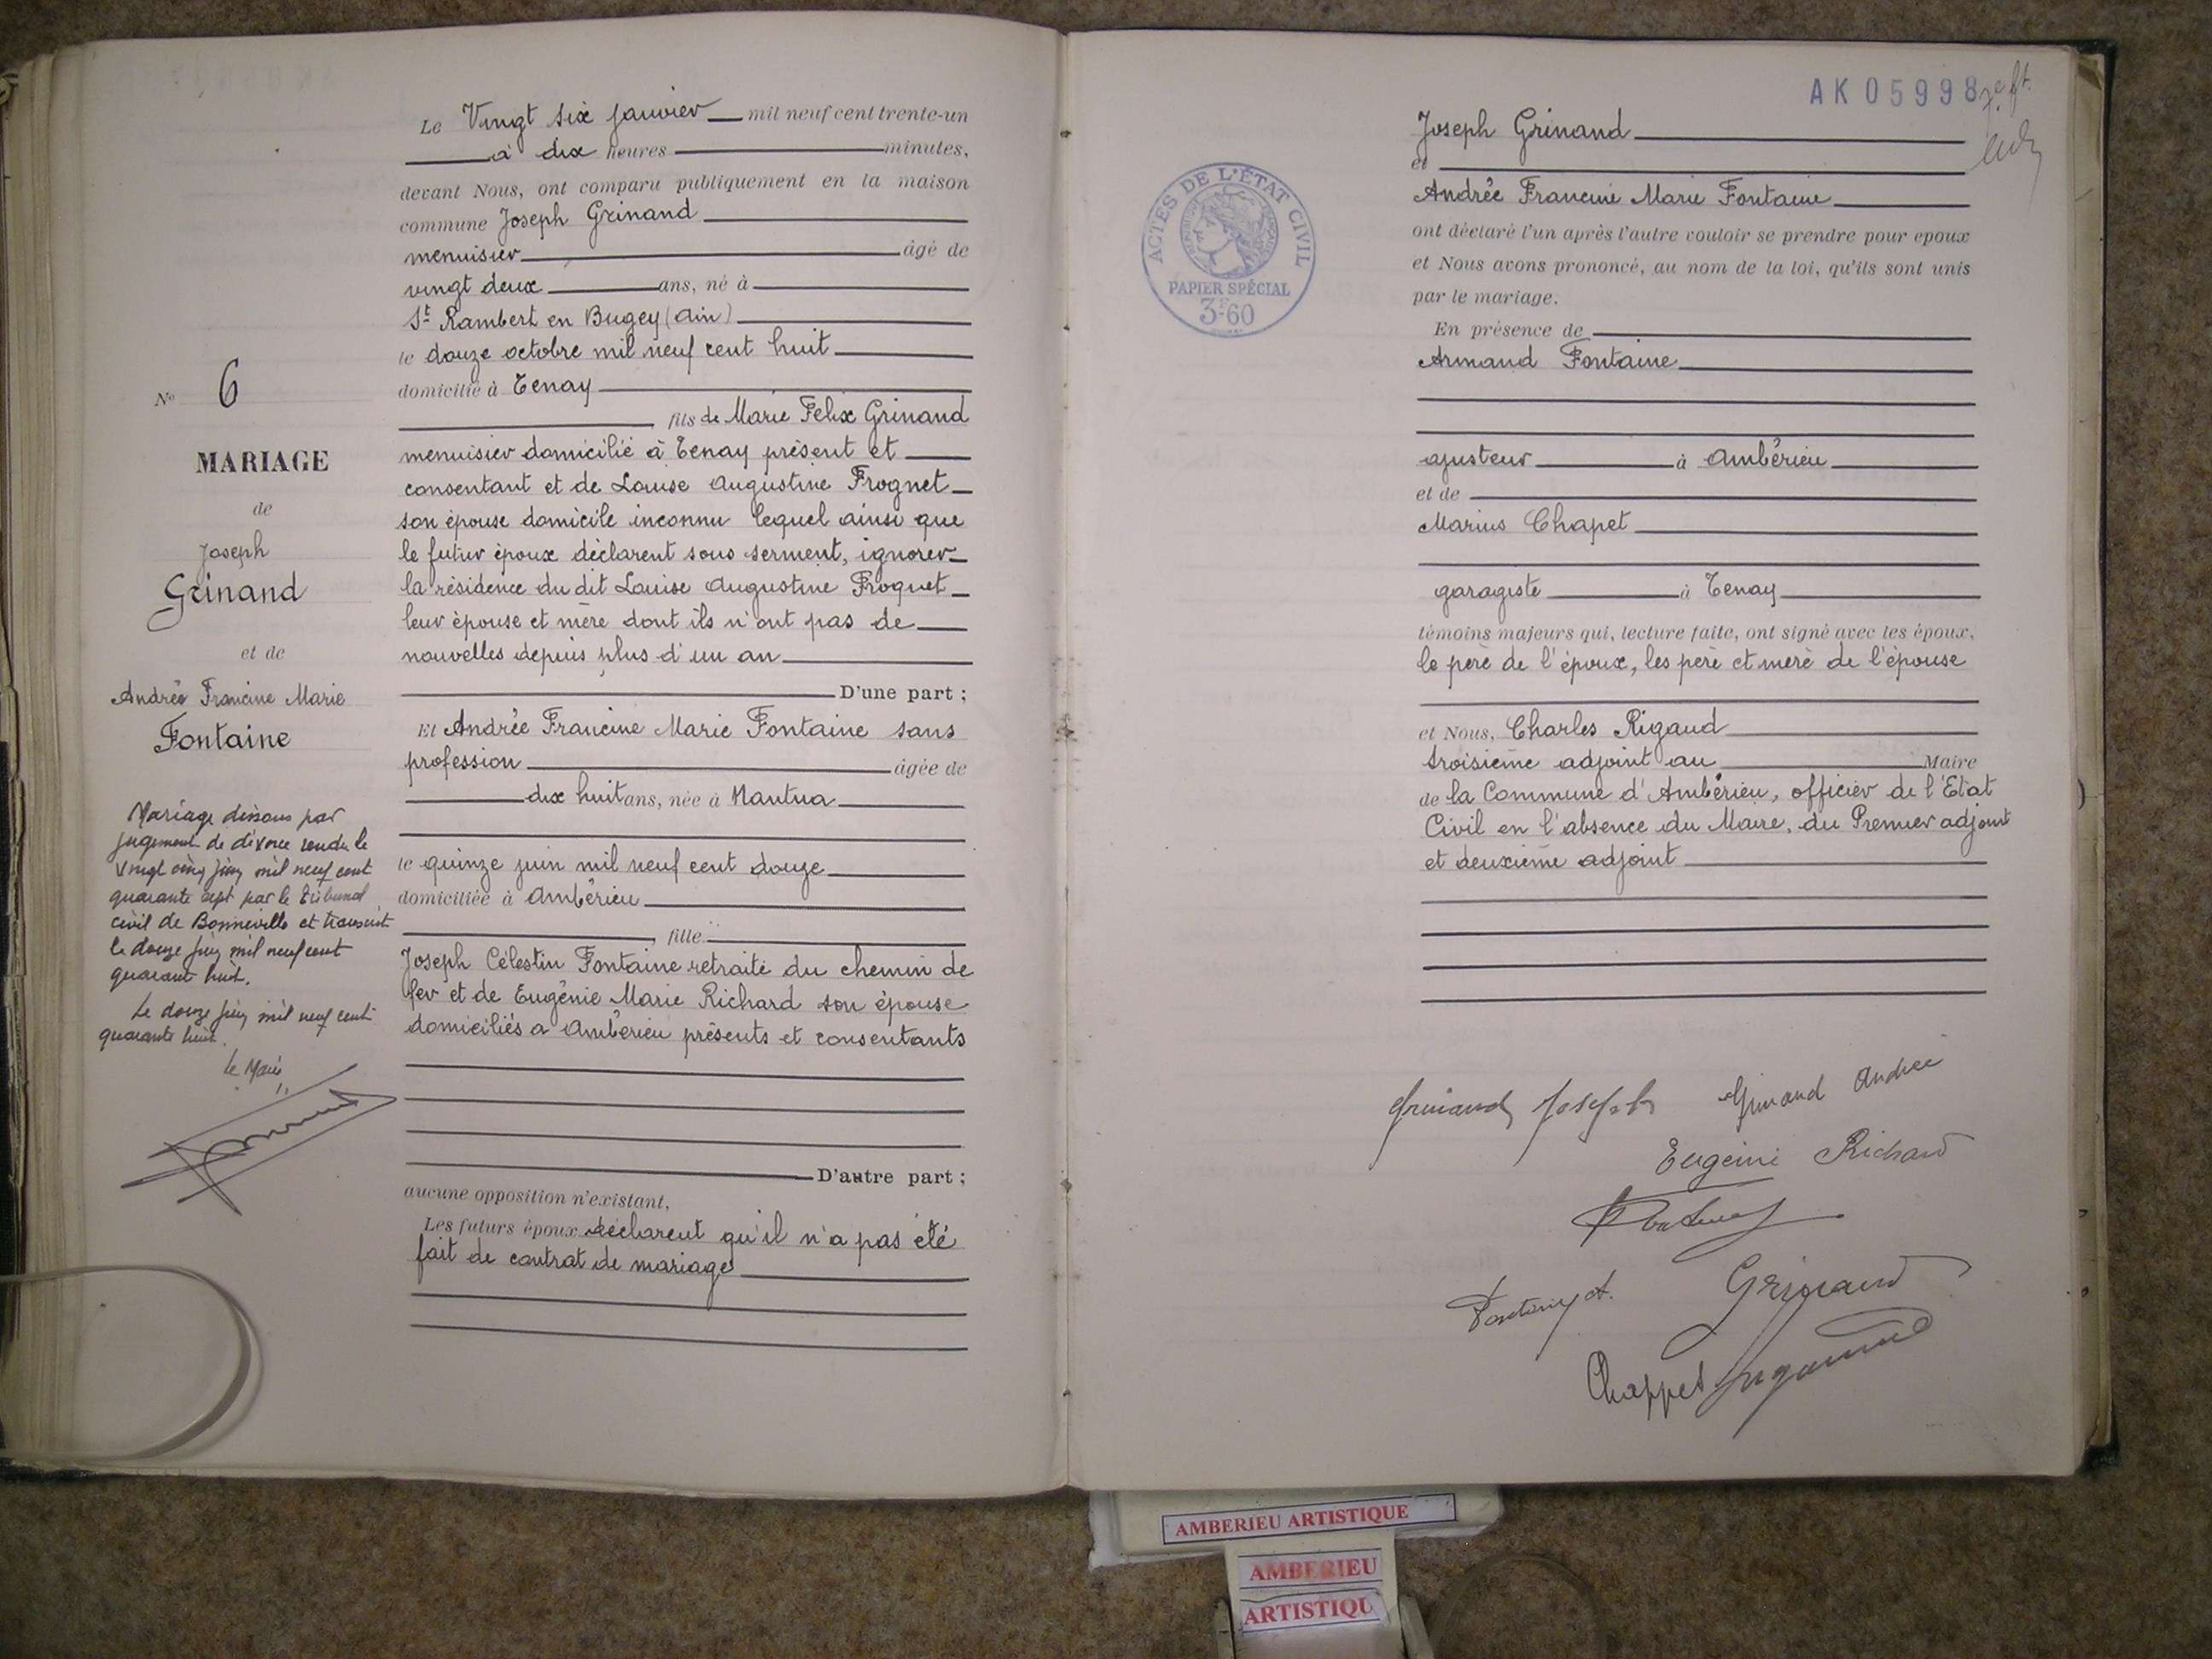 Le Vingt six janvier mil neuf cent trente-un
à dix heures minutes,
devant Nous, ont comparu publiquement en la maison
commune Joseph Grinand
menuisier âgé de
vingt deux ans, né à
St Rambert en Bugey (Ain)
le douze octobre mil neuf cent huit
domicilié à Tenay
fils de Marie Felix Grinand
menuisier domicilié à Tenay présent et
consentant et de Louise Augustine Frognet
son épouse domicile inconnu lequel ainsi que
le futur époux déclarent sous serment, ignorer
la résidence du dit Louise Augustine Froquet
leur épouse et mère dont ils n'ont pas de
nouvelles depuis plus d'un an
D'une part ;
Et Andrée Francine Marie Fontaine sans
profession âgée de
dix huit ans, née à Nantua
le quinze juin mil neuf cent douze
domiciliée à Ambérieu
, fille
Joseph Célestin Fontaine retraité du chemin de
fer et de Eugénie Marie Richard son épouse
domiciliés a Ambérieu présents et consentants
D'autre part ;
aucune opposition n'existant,
Les futurs époux déclarent qu'il n'a pas été
fait de contrat de mariage
No 6
MARIAGE
de
Joseph
Grinand
et de
Andrée Francine Marie
Fontaine
Mariage dissous par
jugement de divorce rendu le
vingt cinq juin mil neuf cent
quarante sept par le tribunal
civil de Bonneville et transcrit
le douze juin mil neuf cent
quarante huit.
Le douze juin mil neuf cent
quarante huit.
Le Maire
AK05998
7e ft.
ACTES DE L'ÉTAT CIVIL
PAPIER SPÉCIAL
3F60
Joseph Grinand
et
Andrée Francine Marie Fontaine
ont déclaré l'un après l'autre vouloir se prendre pour epoux
et Nous avons prononcé, au nom de la loi, qu'ils sont unis
par le mariage.
En présence de
Armand Fontaine
ajusteur à Ambérieu
et de
Marius Chapet
garagiste à Tenay
témoins majeurs qui, lecture faite, ont signé avec les époux,
le père de l'époux, les père et mère de l'épouse
et Nous, Charles Rigaud
troisième adjoint au Maire
de la Commune d'Ambérieu, officier de l'Etat
Civil en l'absence du Maire, du Premier adjoint
et deuxième adjoint
Grinand Joseph Grinand Andrée
Eugénie Richard
Grinand
Chappet
AMBERIEU ARTISTIQUE
AMBERIEU
ARTISTIQU